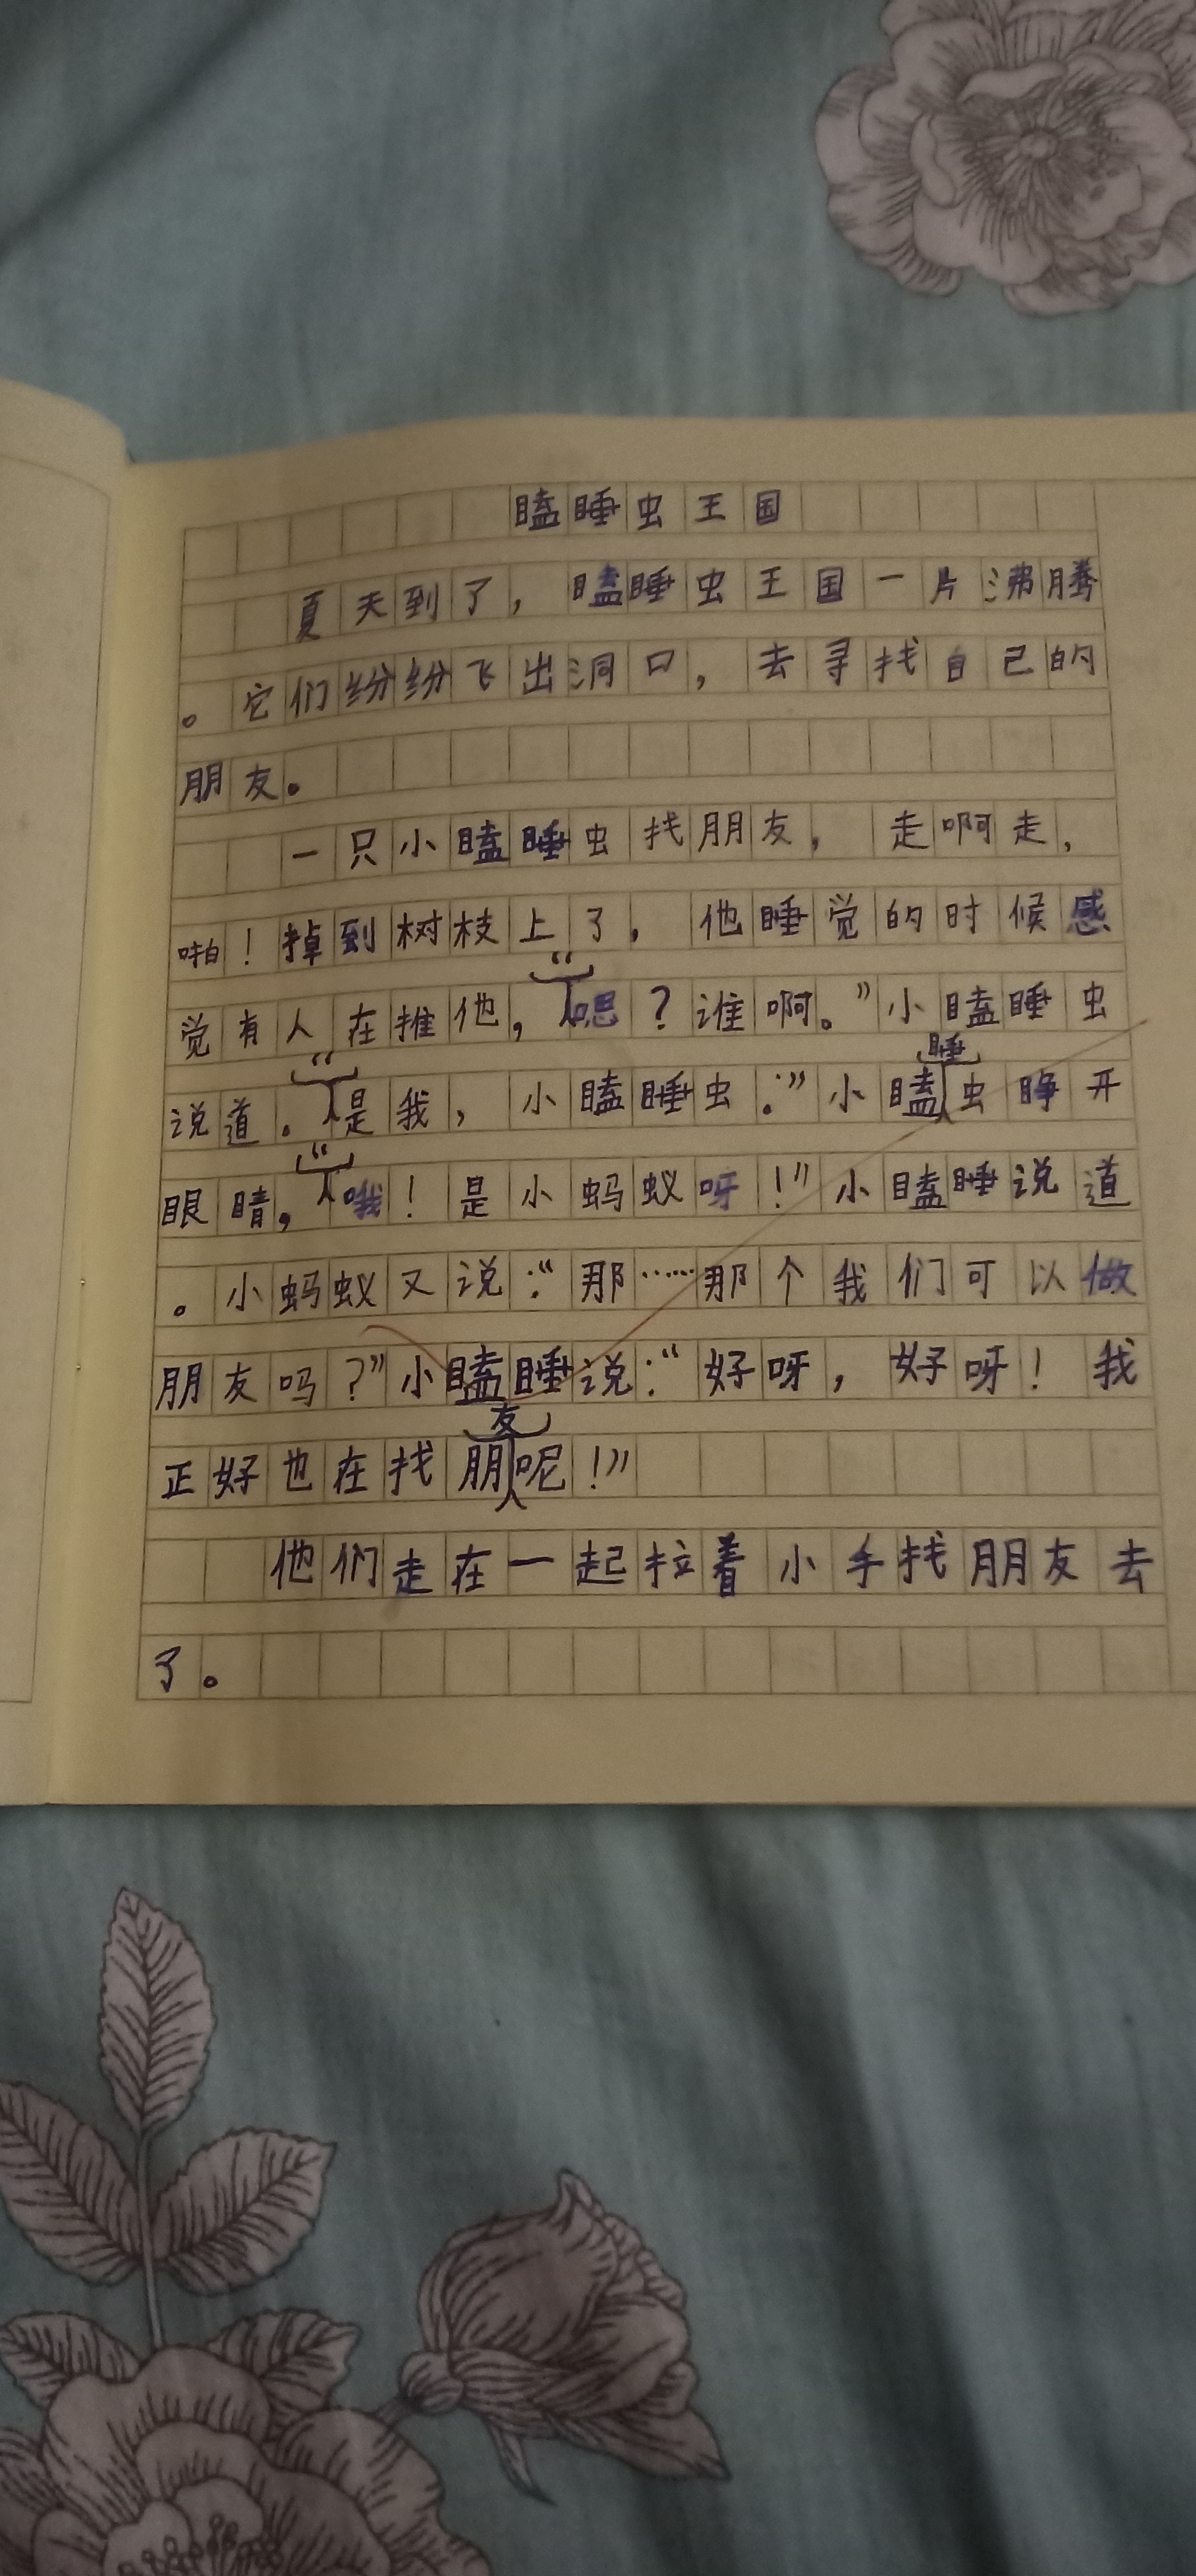 瞌睡虫王国
夏天到了，瞌睡虫王国一片沸腾
。它们纷纷飞出洞口，去寻找自己的
朋友。
一只小瞌睡虫找朋友，走啊走，
啪！掉到树枝上了，他睡觉的时候感
觉有人在推他，“嗯？谁啊。”小瞌睡虫
说道。“是我，小瞌睡虫：”小瞌睡虫睁开
眼睛，“哦！是小蚂蚁呀！”小瞌睡说道
。小蚂蚁又说：“那……那个我们可以做
朋友吗？”小瞌睡说：“好呀，好呀！我
正好也在找朋友呢！”
他们走在一起拉着小手找朋友去
了。